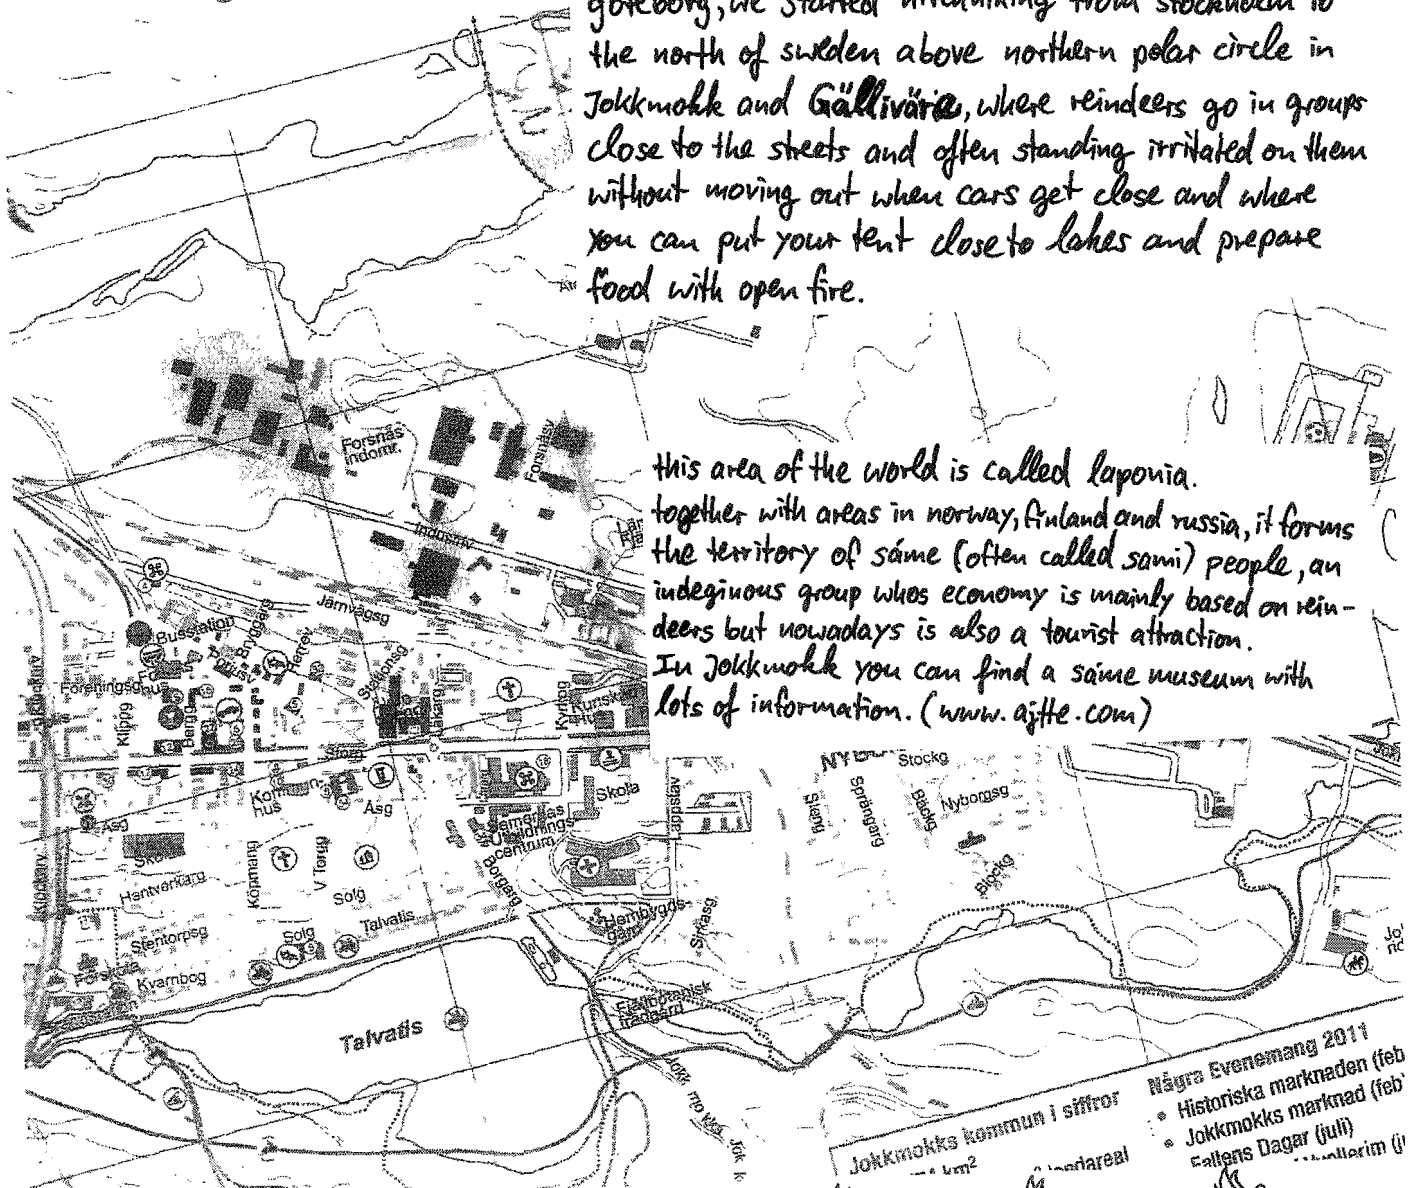 göteborg, we started hitchhiking from stockholm to
the north of sweden above northern polar circle in
Jokkmokk and Gällivare, where reindeers go in groups
close to the streets and often standing irritated on them
without moving out when cars get close and where
you can put your tent close to lakes and prepare
food with open fire.
this area of the world is called laponia.
together with areas in norway, finland and russia, it forms
the territory of sámе (often called sami) people, an
indeginous group whos economy is mainly based on rein-
deers but nowadays is also a tourist attraction.
In Jokkmokk you can find a sáme museum with
lots of information. (www.ajtte.com)
Forsnäs
indomr.
Forsnäsv
Industriv
Järnvägsg
Busstation
Bryggarg
Borgarg
Föreningsg
Klippg
Bergg
Stationsg
Storg
Kommun-
hus
Åsg
Åsg
Skola
Lappstav
Samernas
Utbildnings
centrum
Stockg
Sprängarg
Stång
Bäckg
Nyborgsg
Blockg
Klockarv
Hantverkarg
Köpmang
V Torgg
Solg
Talvatis
Stentorpsg
Solg
Kvarnbog
Hembygds-
gård
Fjällbotanisk
trädgård
Talvatis
Några Evenemang 2011
• Historiska marknaden (feb
• Jokkmokks marknad (feb
Fallens Dagar (juli)
Jokkmokks kommun i siffror
km²